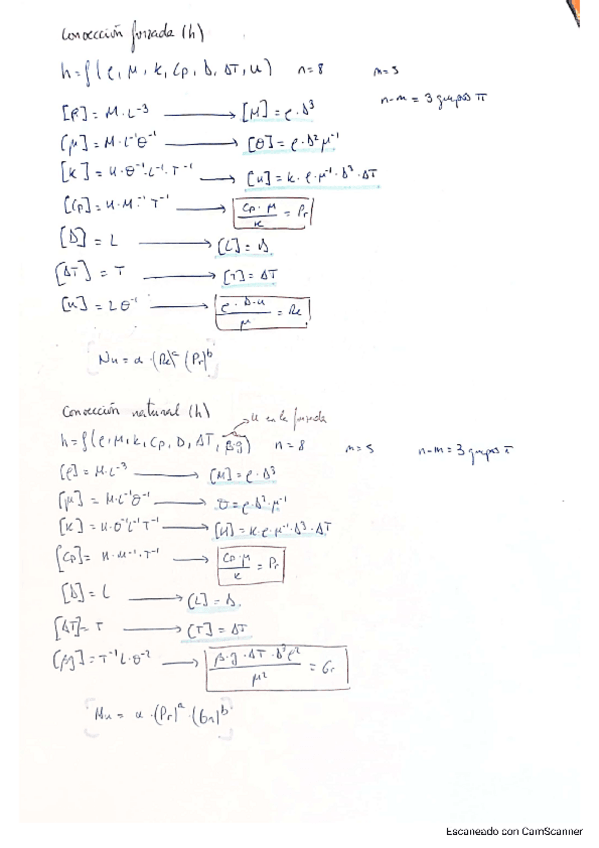 Convección forzada (h)
h = f(ρ, μ, k, Cp, D, ΔT, u)  n=8  m=5
n-m = 3 grupos π
[ρ] = M·L⁻³ → [M] = ρ·D³
[μ] = M·L⁻¹θ⁻¹ → [θ] = ρ·D²μ⁻¹
[k] = H·θ⁻¹·L⁻¹·T⁻¹ → [H] = k·ρ·μ⁻¹·D³·ΔT
[Cp] = H·M⁻¹T⁻¹ → Cp·μ/k = Pr
[D] = L → [L] = D
[ΔT] = T → [T] = ΔT
[u] = Lθ⁻¹ → ρ·D·u/μ = Re
Nu = a·(Re)ᵃ(Pr)ᵇ
Convección natural (h)
u en la forzada
h = f(ρ, μ, k, Cp, D, ΔT, βg)  n=8  m=5  n-m = 3 grupos π
[ρ] = M·L⁻³ → [M] = ρ·D³
[μ] = M·L⁻¹θ⁻¹ → θ = ρ·D²·μ⁻¹
[k] = H·θ⁻¹L⁻¹T⁻¹ → [H] = k·ρ·μ⁻¹·D³·ΔT
[Cp] = H·M⁻¹·T⁻¹ → Cp·μ/k = Pr
[D] = L → [L] = D
[ΔT] = T → [T] = ΔT
[βg] = T⁻¹L·θ⁻² → β·g·ΔT·D³ρ²/μ² = Gr
Nu = a·(Pr)ᵃ·(Gr)ᵇ
Escaneado con CamScanner